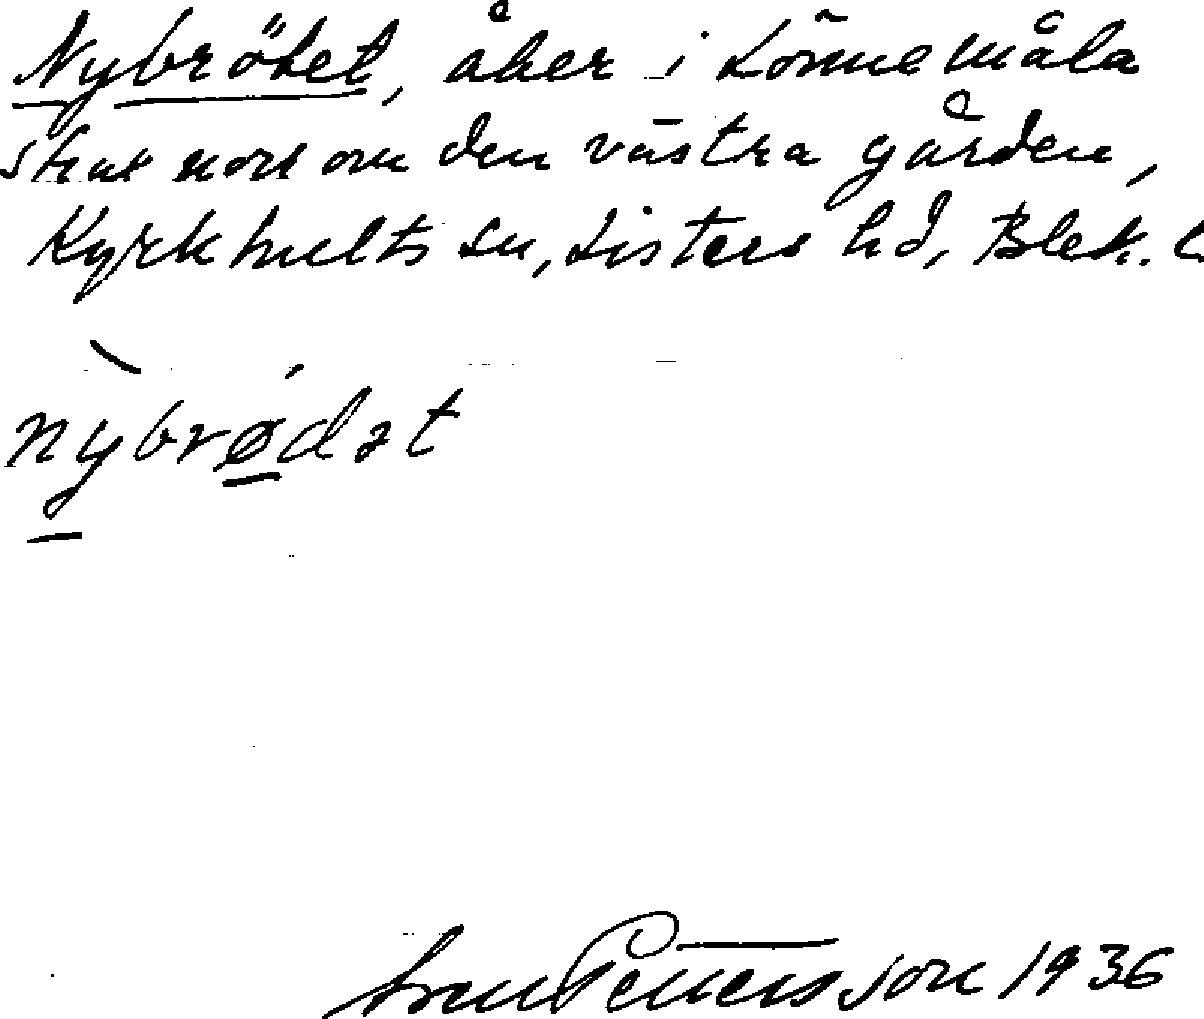 Nybrötet, åker i Lönnemåla
strax norr om den västra gården,
Kyrkhults sn, Listers hd, Blek. l
nybrødət
Sven Pettersson 1936